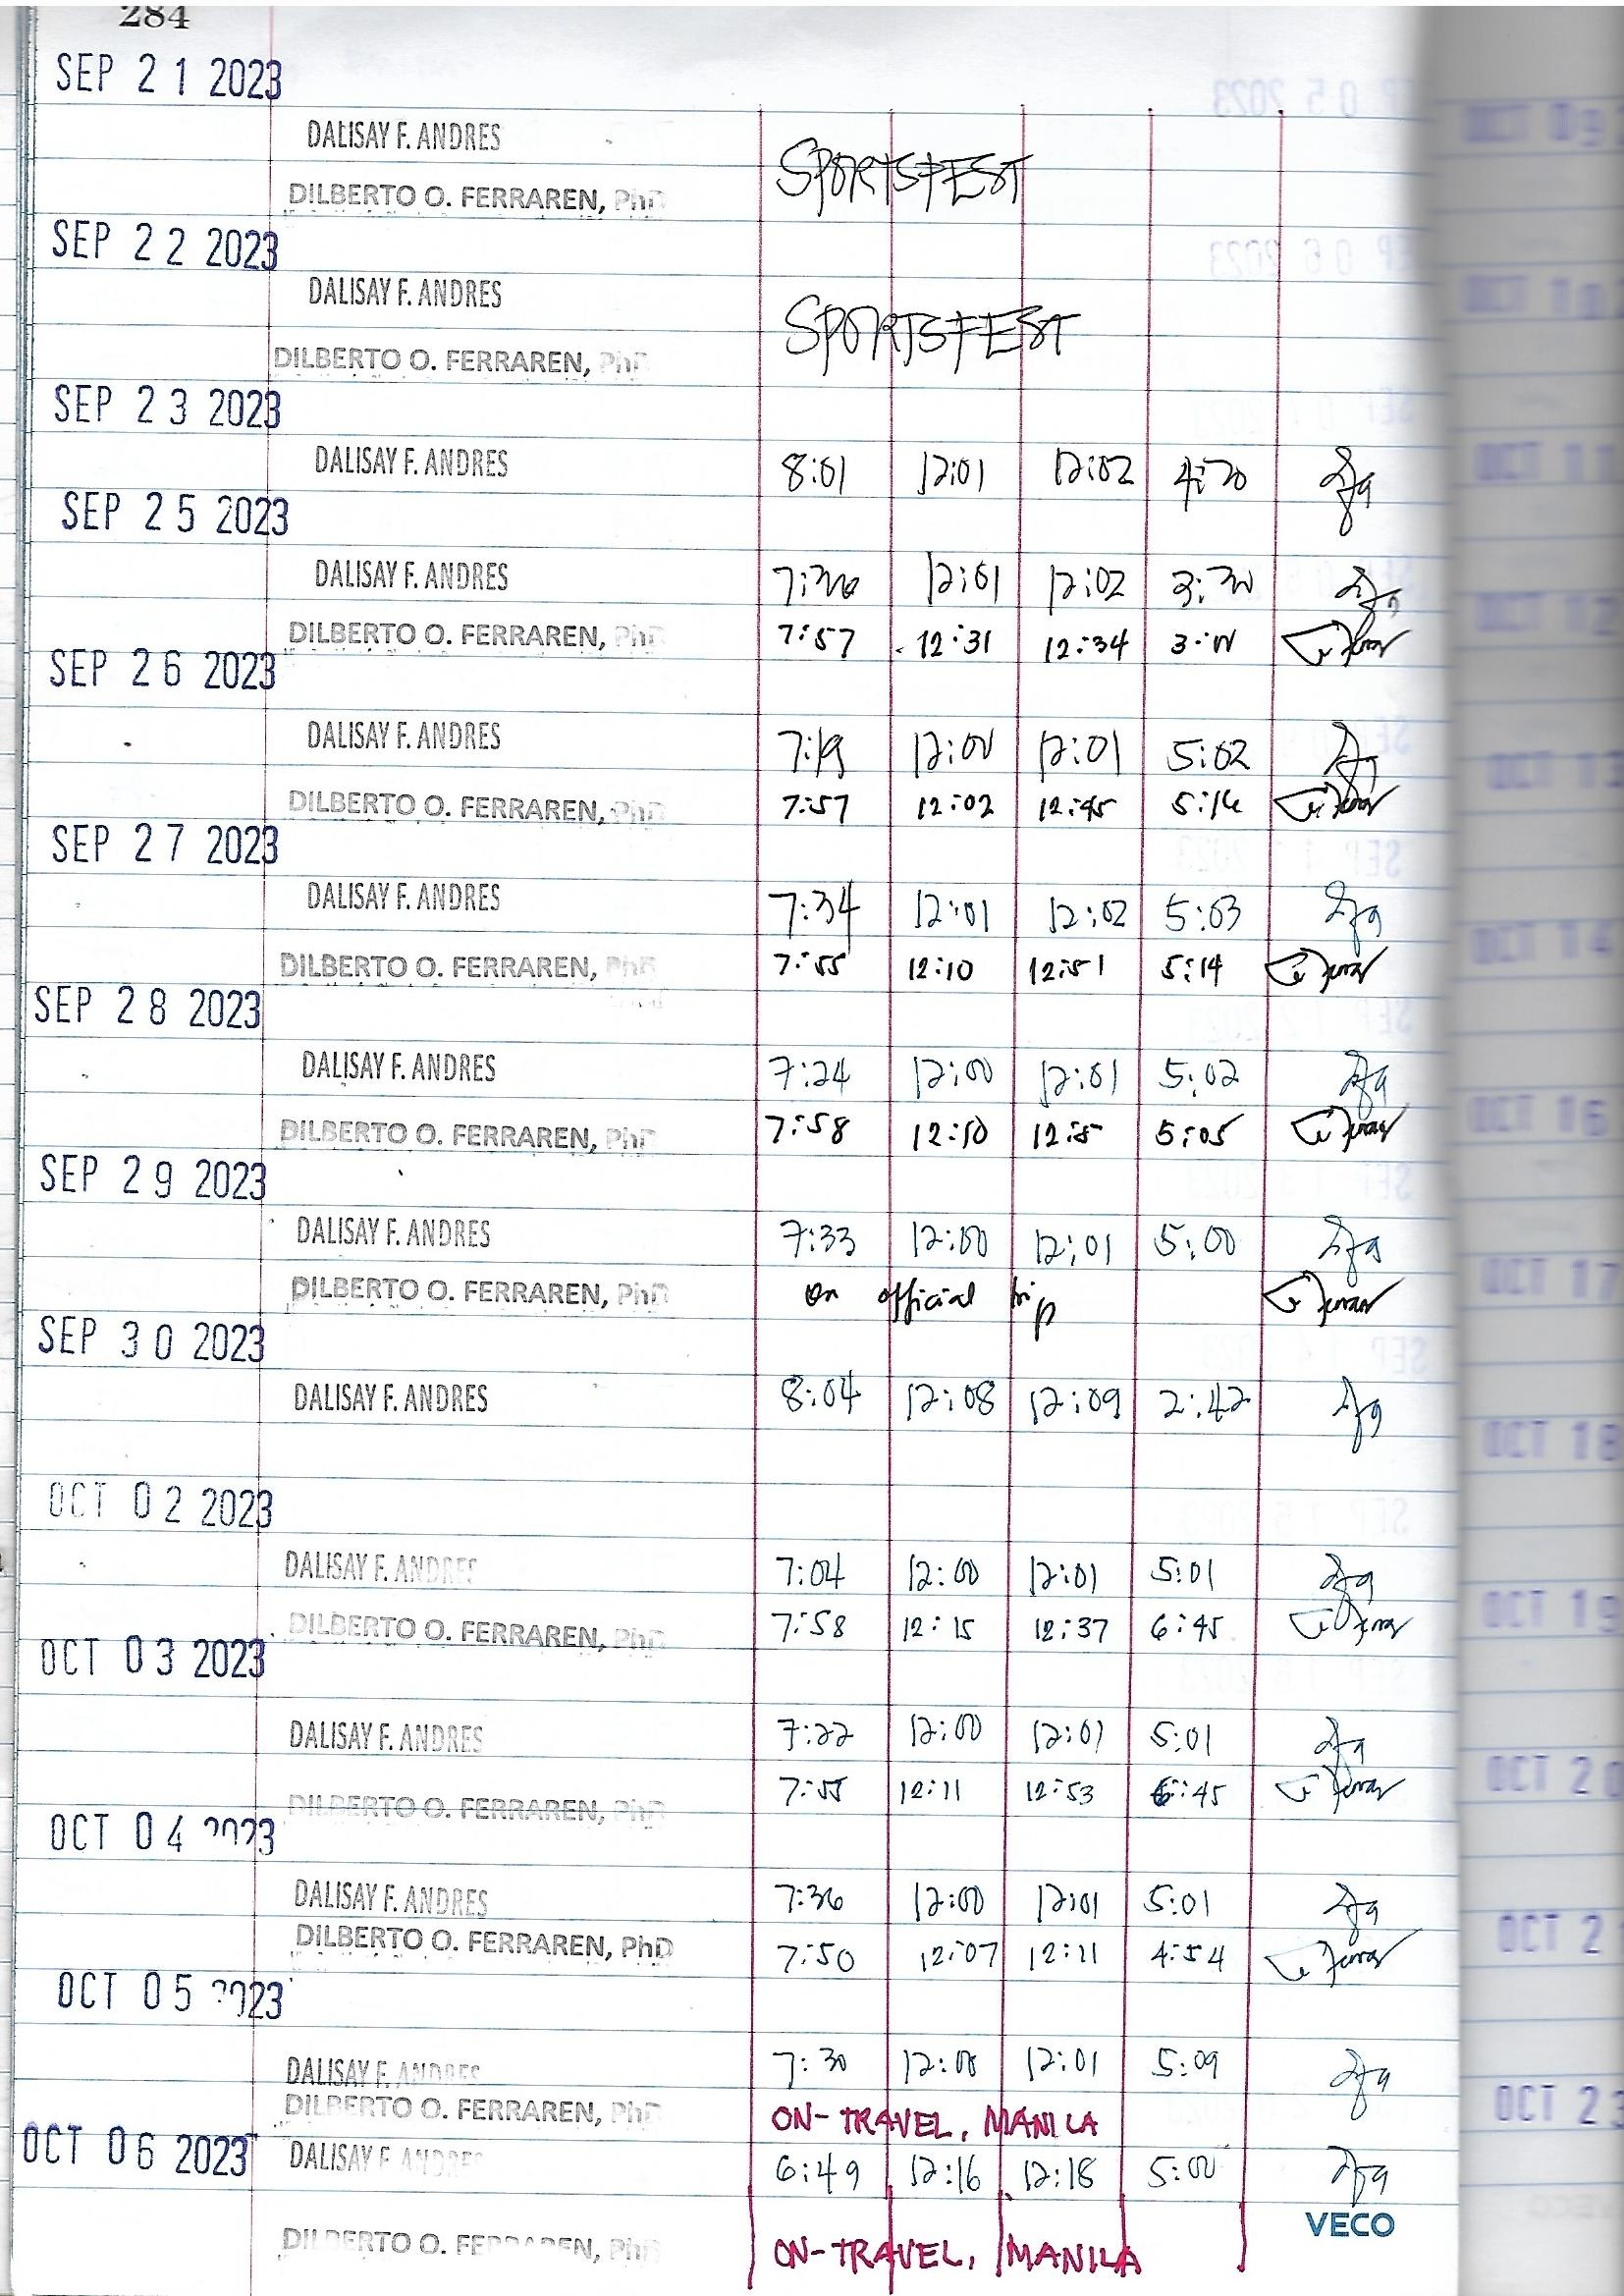 284
SEP 21 2023
DALISAY F. ANDRES
SPORTSFEST
DILBERTO O. FERRAREN, PhD
SEP 22 2023
DALISAY F. ANDRES
SPORTSFEST
DILBERTO O. FERRAREN, PhD
SEP 23 2023
DALISAY F. ANDRES 8:01 12:01 12:02 4:30
SEP 25 2023
DALISAY F. ANDRES 12:01 12:02 3:30
DILBERTO O. FERRAREN, PhD 7:57 12:31 12:34
SEP 26 2023
DALISAY F. ANDRES 7:19 12:00 12:01 5:02
DILBERTO O. FERRAREN, PhD 7:57 12:02 12:45
SEP 27 2023
DALISAY F. ANDRES 7:34 12:01 12:02 5:03
DILBERTO O. FERRAREN, PhD 7:55 12:10 12:51 5:14
SEP 28 2023
DALISAY F. ANDRES 7:24 12:00 12:01 5:02
DILBERTO O. FERRAREN, PhD 7:58 12:10 5:05
SEP 29 2023
DALISAY F. ANDRES 7:33 12:00 12:01 5:00
DILBERTO O. FERRAREN, PhD on official trip
SEP 30 2023
DALISAY F. ANDRES 8:04 12:08 12:09 2:42
OCT 02 2023
DALISAY F. ANDRES 7:04 12:00 12:01 5:01
DILBERTO O. FERRAREN, PhD 7:58 12:15 12:37 6:45
OCT 03 2023
DALISAY F. ANDRES 7:22 12:00 12:01 5:01
DILBERTO O. FERRAREN, PhD 7:55 12:11 12:53 6:45
OCT 04 2023
DALISAY F. ANDRES 7:36 12:00 12:01 5:01
DILBERTO O. FERRAREN, PhD 7:50 12:07 12:11 4:54
OCT 05 2023
DALISAY F. ANDRES 7:30 12:00 12:01 5:09
DILBERTO O. FERRAREN, PhD ON-TRAVEL, MANILA
OCT 06 2023 DALISAY F. ANDRES 6:49 12:16 12:18 5:00
VECO
DILBERTO O. FERRAREN, PhD ON-TRAVEL, MANILA
OCT 09
OCT 10
OCT 11
OCT 12
OCT 13
OCT 14
OCT 16
OCT 17
OCT 18
OCT 19
OCT 20
OCT 2
OCT 23